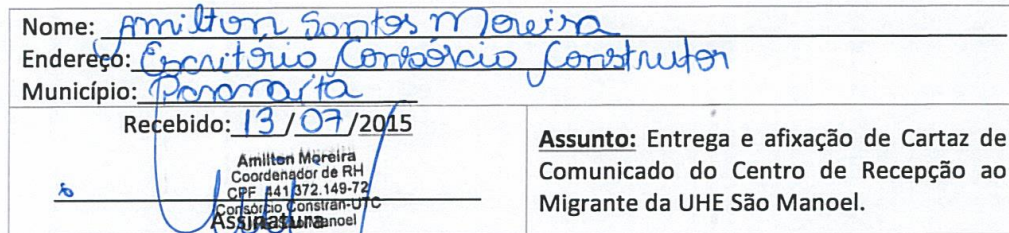 Nome: Amilton Santos Moreira
Endereço: Escritório Consórcio Construtor
Município: Paranaíta
Recebido: 13/07/2015
Amilton Moreira
Coordenador de RH
CPF 441 372.149-72
Consórcio Constran-UTC
UHE São Manoel
Assinatura
Assunto: Entrega e afixação de Cartaz de
Comunicado do Centro de Recepção ao
Migrante da UHE São Manoel.